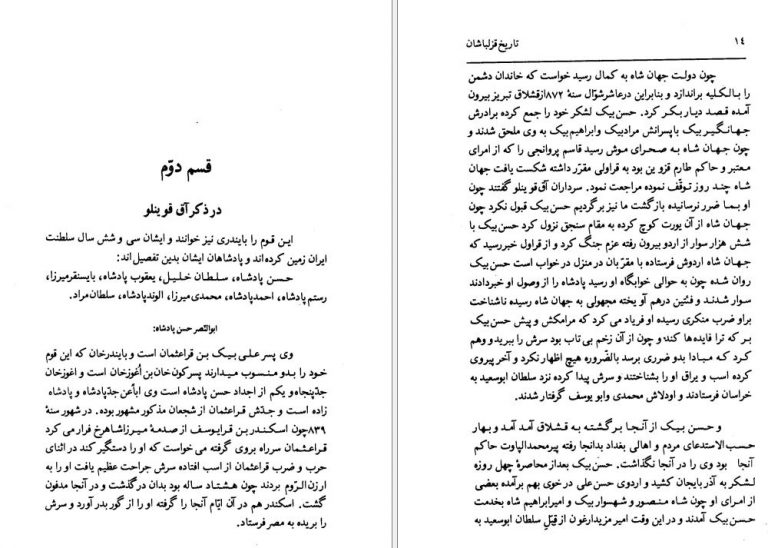 ١٤
تاریخ قزلباشان
چون دولت جهان شاه به کمال رسید خواست که خاندان دشمن
را بالکلیه براندازد و بنابراین درعاشر شوّال سنهٔ ٨٧٢ از قشلاق تبریز بیرون
آمده قصد دیاربکر کرد. حسن بیک لشکر خود را جمع کرده برادرش
جهانگیر بیک با پسرانش مرادبیک وابراهیم بیک به وی ملحق شدند و
چون جهان شاه به صحرای موش رسید قاسم پروانجی را که از امرای
معتبر و حاکم طارم قزوین بود به قراولی مقرّر داشته شکست یافت جهان
شاه چند روز توقّف نموده مراجعت نمود. سرداران آق قوینلو گفتند چون
او بما ضرر نرسانیده بازگشت ما نیز برگردیم حسن بیک قبول نکرد چون
جهان شاه از آن یورت کوچ کرده به مقام سنجق نزول کرد حسن بیک با
شش هزار سوار از اردو بیرون رفته عزم جنگ کرد و از قراول خبررسید که
جهان شاه اردوش فرستاده با مقرّبان در منزل در خواب است حسن بیک
روان شده چون به حوالی خوابگاه او رسید پادشاه را از وصول او خبردادند
سوار شدند و فئتین درهم آویخته مجهولی به جهان شاه رسیده ناشناخت
براو ضرب منکری رسیده او فریاد می کرد که مرامکش و پیش حسن بیک
بر که ترا فایده‌ها کند و چون از آن زخم بی تاب بود سرش را ببرید و وهم
کرد که مبادا بدو ضرری برسد بالضّروره هیچ اظهار نکرد و آخر پیروی
کرده اسب و یراق او را بشناختند و سرش پیدا کرده نزد سلطان ابوسعید به
خراسان فرستادند و اودلاش محمدی وابو یوسف گرفتار شدند.
و حسن بیک از آنجا برگشته به قشلاق آمد آمد و بهار
حسب الاستدعای مردم و اهالی بغداد بدانجا رفته پیرمحمد الپاوت حاکم
آنجا بود وی را در آنجا نگذاشت. حسن بیک بعداز محاصرهٔ چهل روزه
لشکر به آذربایجان کشید و اردوی حسن علی در خوی بهم برآمده بعضی
از امرای او چون شاه منصور و شهسوار بیک و امیرابراهیم شاه بخدمت
حسن بیک آمدند و در این وقت امیر مزیدارغون از قِبَلِ سلطان ابوسعید به
قسم دوّم
در ذکر آق قوینلو
این قوم را بایندری نیز خوانند و ایشان سی و شش سال سلطنت
ایران زمین کرده‌اند و پادشاهان ایشان بدین تفصیل‌اند:
حسن پادشاه، سلطان خلیل، یعقوب پادشاه، بایسنقرمیرزا،
رستم پادشاه، احمدپادشاه، محمدی میرزا، الوندپادشاه، سلطان مراد.
ابوالنّصر حسن پادشاه:
وی پسر علی بیک بن قراعثمان است و بایندرخان که این قوم
خود را بدو منسوب میدارند پسرکون خان بن اُغوزخان است و اغوزخان
جدّ پنجاه و یکم از اجداد حسن پادشاه است وی اباًعن جدّ پادشاه و پادشاه
زاده است و جدّش قراعثمان از شجعان مذکور مشهور بوده. در شهور سنهٔ
٨٣٩ چون اسکندر بن قرایوسف از صدمهٔ میرزا شاهرخ فرار می کرد
قراعثمان سرراه بروی گرفته می خواست که او را دستگیر کند در اثنای
حرب و ضرب قراعثمان از اسب افتاده سرش جراحت عظیم یافت او را به
ارزن الرّوم بردند چون هشتاد ساله بود بدان درگذشت و در آنجا مدفون
گشت. اسکندر هم در آن ایّام آنجا را گرفته او را از گور بدر آورد و سرش
را بریده به مصر فرستاد.